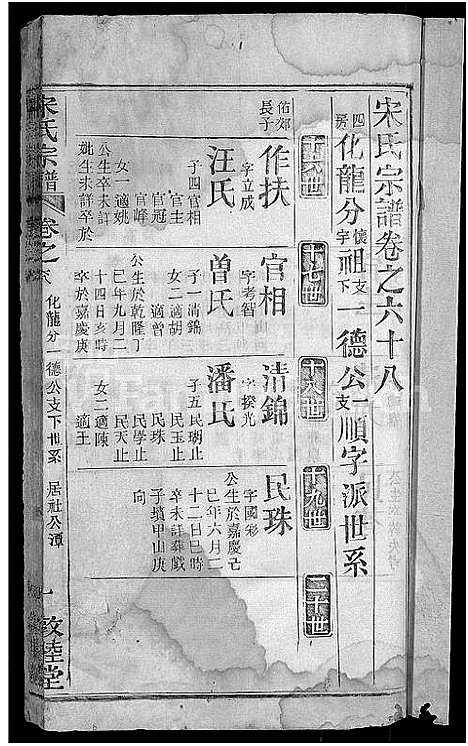 宋氏宗譜卷之六十八
四房化龍分懷字祖支下一德公一支順字派世系
十六世
十七世
十八世
十九世
二十世
佑郊長子
作扶
字立成
汪氏
子四官相
官圭
官冠
官峰
女一適姚
公生卒未詳
妣生未詳卒於
官相
字考智
曾氏
子一清錦
女二適胡
公生於乾隆丁
巳年九月二
十四日亥時
卒於嘉慶庚
清錦
字揆光
潘氏
子五民瑚止
民玉止
民珠
民學止
民天止
女二適陳
適王
民珠
字國彩
公生於嘉慶己
巳年六月二
十二日巳時
卒未詳葬戲
子墳甲山庚
向
宋氏宗譜
卷之六八
化龍分一德公支下世系
居社公潭
一
敦睦堂